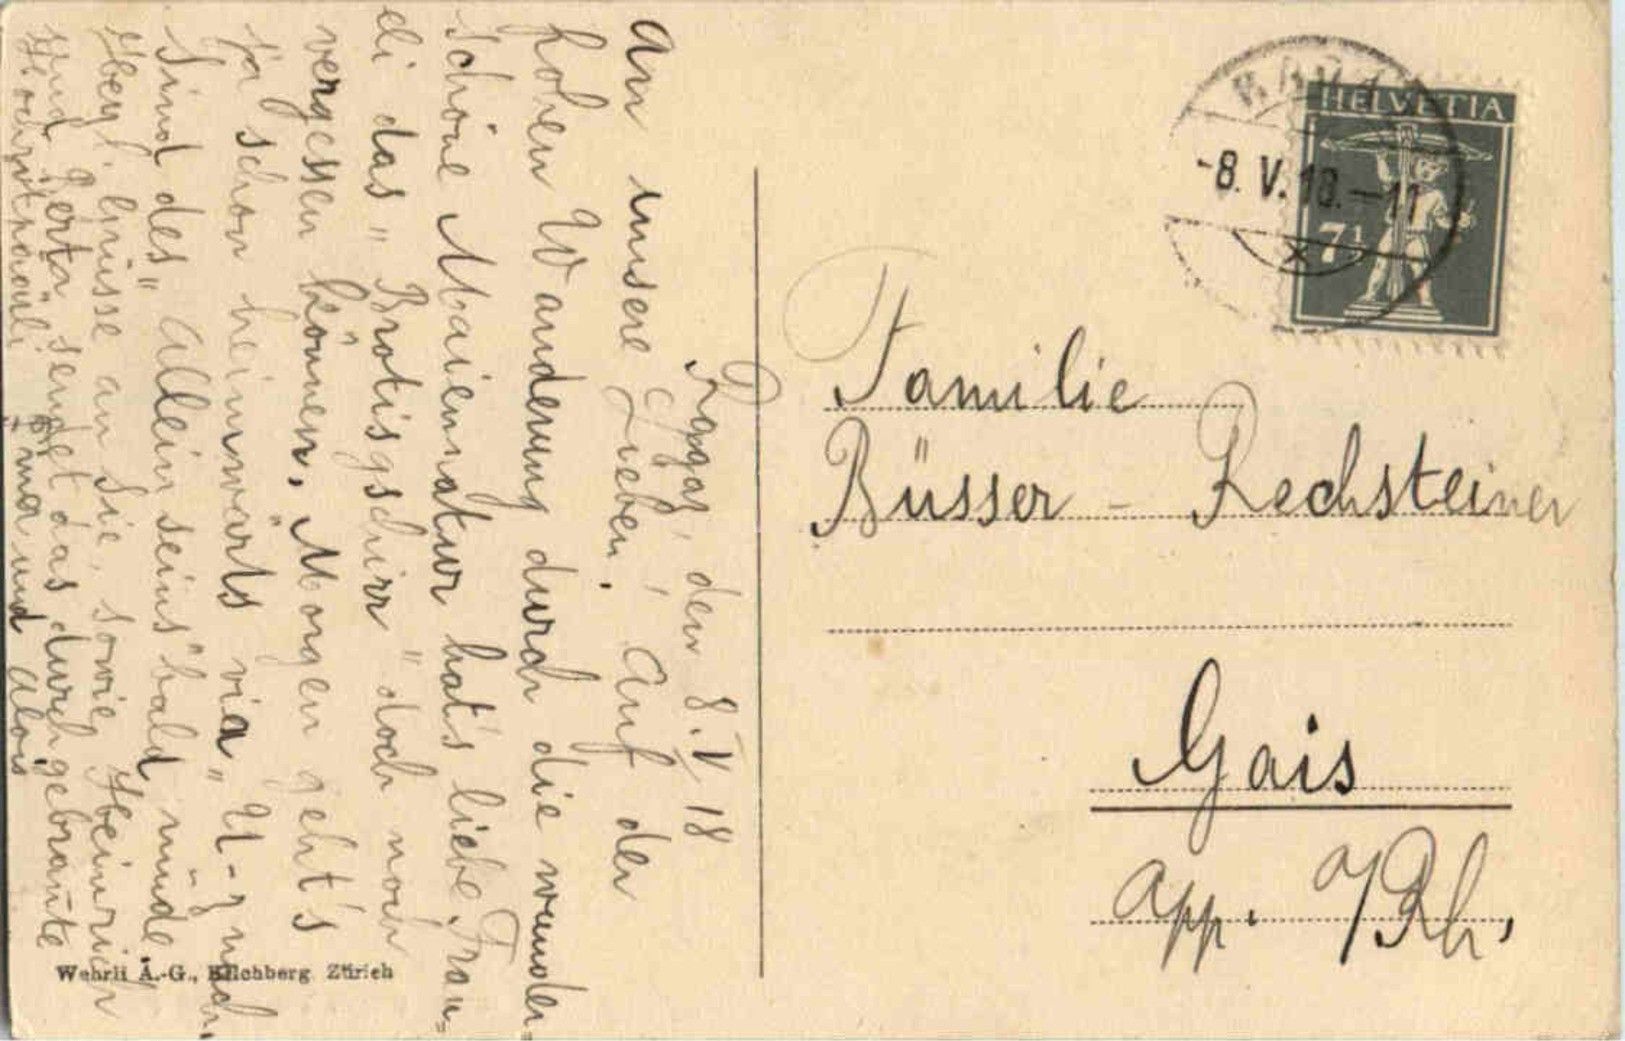 Ragaz, den 8. V 18
An unsere Lieben! Auf der
hohen Wanderung durch die wunder=
schöne Maiennatur hat's liebe Frau=
eli das „Brotisgschirr" doch noch
vergessen können. Morgen geht's
ja schon heimwärts via „U-z nach,
sind des „Alleinseins" bald müde
Herzl. Grüsse an Sie, sowie Heinrich
und Berta sendet das durchgebrannte
Hochzitspaarli
=ma und Alois
Wehrli A.-G., Kilchberg Zürich
HELVETIA
7½
-8. V. 18.-11
X
Familie
Büsser - Rechsteiner
Gais
App. A/Rh.